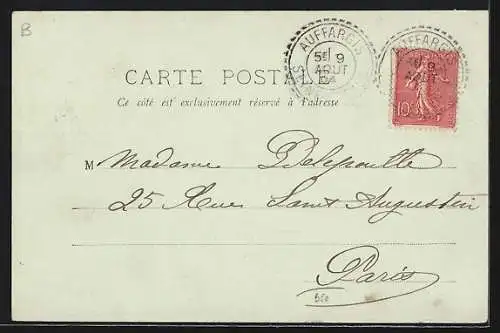 B
AUFFARGIS
5E 9
AOUT
04
AUFFARGIS
AOUT
10
CARTE POSTALE
Ce côté est exclusivement réservé à l'adresse
M Madame Delepoulle
25 Rue Saint Augustin
Paris